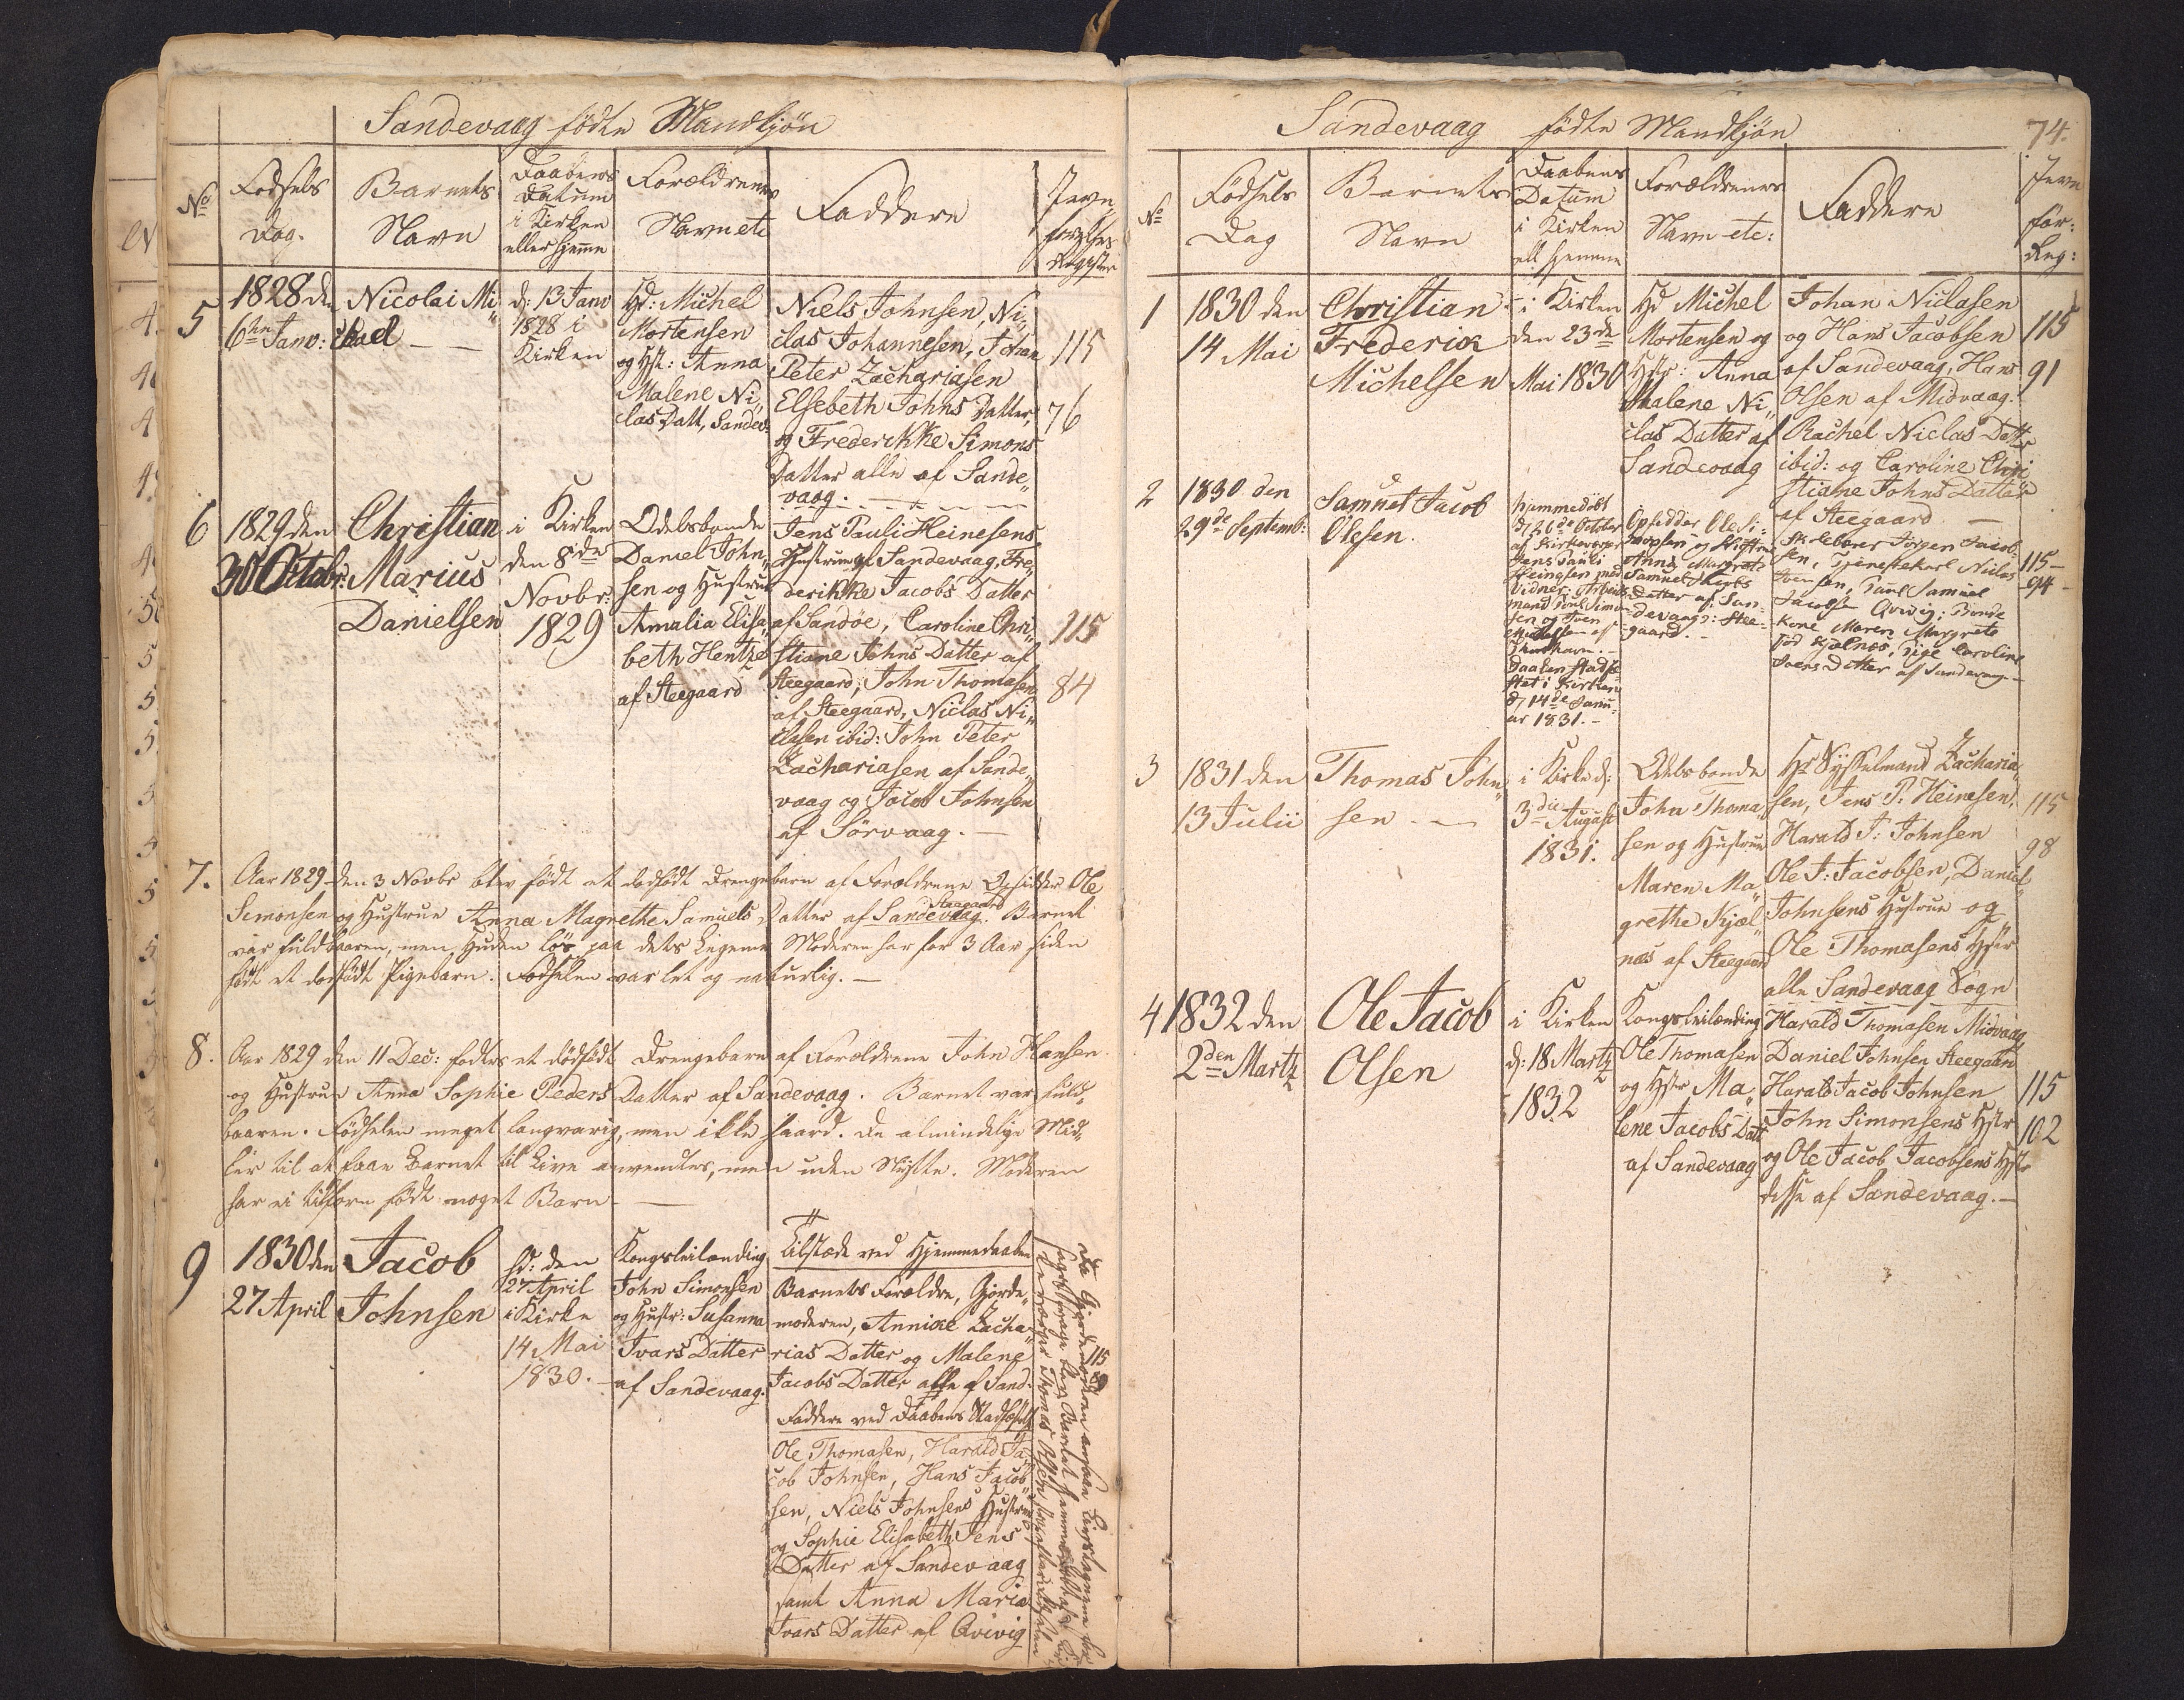 Sandevaag fødte Mandkjøn
No
Fødsels
Dag.
Barnets
Navn
Daabens
Datum
i Kirken
eller hjemme
Forældrenes
Navn etc
Faddere
Jevn-
førelses
Register
5
1828 den
6te Janv:
Nicolai Mi„
chael
d: 13 Janv
1828 i
Kirken
Hd: Michel
Mortensen
og Hst: Anna
Malene Ni„
clas Datt, Sandev:
Niels Johnsen, Ni„
clas Johannesen, Johan
Peter Zachariasen
Elsebeth Johns Datter,
og Frederikke Simons
Datter alle af Sande„
vaag.
115
76
6
1829 den
30 Octobr:
Christian
Marius
Danielsen
i Kirken
den 8de
Novbr:
1829
Odelsbonde
Daniel John„
sen og Hustrue
Amalia Elisa„
beth Hentze
af Steegaard
Jens Pauli Heinesens
Hustrue af Sandevaag, Fre„
derikke Jacobs Datter
af Sandøe, Caroline Chri„
stiane Johns Datter af
Steegaard, John Thomasen
af Steegaard, Niclas Ni„
clasen ibid: John Peter
Zachariasen af Sande„
vaag og Jacob Johnsen
af Sörvaag.
115
84
7.
Aar 1829 den 3 Novbr blev født et dødfødt Drengebarn af Forældrene Opsidder Ole
Simonsen og Hustrue Anna Magrethe Samuels Datter af Sandevaag. Barnet
Steegaard
var fuldbaaren, men Huden løs paa dets Legeme Moderen har for 3 Aar siden
født et dødfødt Pigebarn. Fødselen var let og naturlig.
8.
Aar 1829 den 11 Dec: fødtes et dødfødt Drengebarn af Forældrene John Hansen
og Hustrue Anna Sophie Peders Datter af Sandevaag. Barnet var fuld„
baaren. Fødselen meget langvarig, men ikke haard. De almindelige Mid„
ler til at faae Barnet til Live anvendtes, men uden Nytte. Moderen
har ei tilforn født noget Barn
9
1830 den
27 April
Jacob
Johnsen
hd: den
27 April
i Kirke
14 Mai
1830.
Kongsleilænding
John Simonsen
og Hustr: Susanna
Ivars Datter
af Sandevaag.
Tilstæde ved Hjemmedaaben
Barnets Forældre, Gjorde„
moderen, Annike Zacha„
rias Datter og Malene
Jacobs Datter alle af Sand:
Faddere ved Daabens Stadfæst
Ole Thomasen, Harald Ja„
cob Johnsen, Hans Jacob
sen, Niels Johnsens Hustrue
og Sophie Elisabeth Jens
Datter af Sandevaag
samt Anna Maria
Ivars Datter af Qvivig
115
89
Sandevaag fødte Mandkjøn
74.
No
Fødsels
Dag
Barnets
Navn
Daabens
Datum
i Kirken
ell hjemme
Forældrenes
Navn etc:
Faddere
Jevn
før:
Reg:
1
1830 den
14 Mai
Christian
Frederik
Michelsen
i Kirken
den 23de
Mai 1830
Hd Michel
Mortensen og
Hstr: Anna
Malene Ni„
clas Datter af
Sandevaag
Johan Niclasen
og Hans Jacobsen
af Sandevaag, Hans
Olsen af Midvaag.
Rachel Niclas Dattr
ibid: og Caroline Chri
stiane Johns Datter
af Steegaard
115
91
2
1830 den
29de Septemb:
Samuel Jacob
Olesen
hjemmedøbt
d 26de October
af Kirkeværger
Jens Pauli
Heinesen med
Vidner:
mand Poul Simo-
sen og Sven
af
Daaben stadfæ-
stet i Kirken
d 14de Janu-
ar 1831.
Opsidder Ole Si-
monsen og Hustrue
Anna Margrete
Samuel
Datter af San-
devaag: Stee-
gaard.
Skolelærer Jørgen Jacob-
sen, Tjenestekarl Niclas
Svensen, Poul Samuel
Jacobsen Qvivig; Bonde
Kone Maren Margrete
fød Kjølnæs, Pige Caroline
Svens Datter af Sandevaag
115
94
3
1831 den
13 Julii
Thomas John„
sen
i Kirke d:
3die August
1831.
Odelsbonde
John Thoma„
sen og Hustrue
Maren Ma„
grethe Kjøl„
næs af Steegaard
Hr Sysselmand Zacharia„
sen, Jens P: Heinesen,
Harald J: Johnsen
Ole J: Jacobsen, Daniel
Johnsens Hustrue og
Ole Thomasens Hstr
alle Sandevaag Sogn
115
98
4
1832 den
2den Martz
Ole Jacob
Olsen
i Kirken
d: 18 Martz
1832
Kongsleilænding
Ole Thomasen
og Hstr Ma„
lene Jacobs Datt
af Sandevaag
Harald Thomasen Midvaag,
Daniel Johnsen Steegaard
Harald Jacob Johnsen
John Simonsens Hstr
og Ole Jacob Jacobsens Hstr
disse af Sandevaag.
115
102